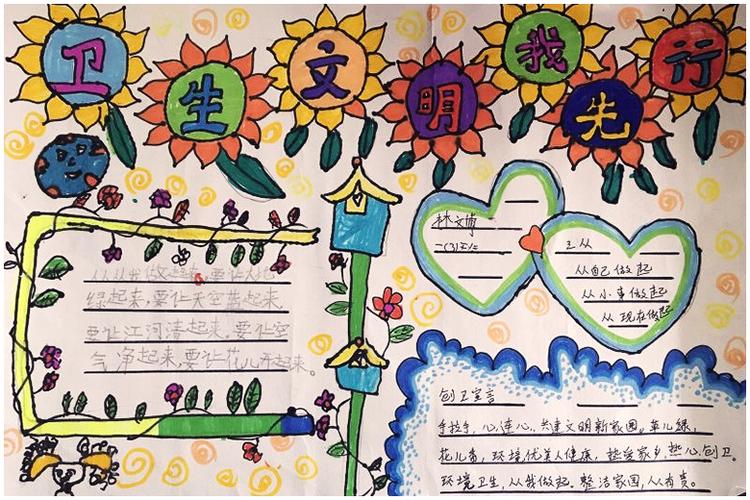 卫生文明我先行
从从我做起来,要让大地
绿起来,要让天空蓝起来,
要让江河清起来,要让空
气净起来,要让花儿开起来。
林文博
二(3)班
三从
从自己做起
从小事做起
从现在做起
创卫宣言
手拉手,心连心,共建文明新家园。草儿绿,
花儿香,环境优美人健康,热爱家乡热心创卫。
环境卫生,从我做起。整洁家园,人人有责。